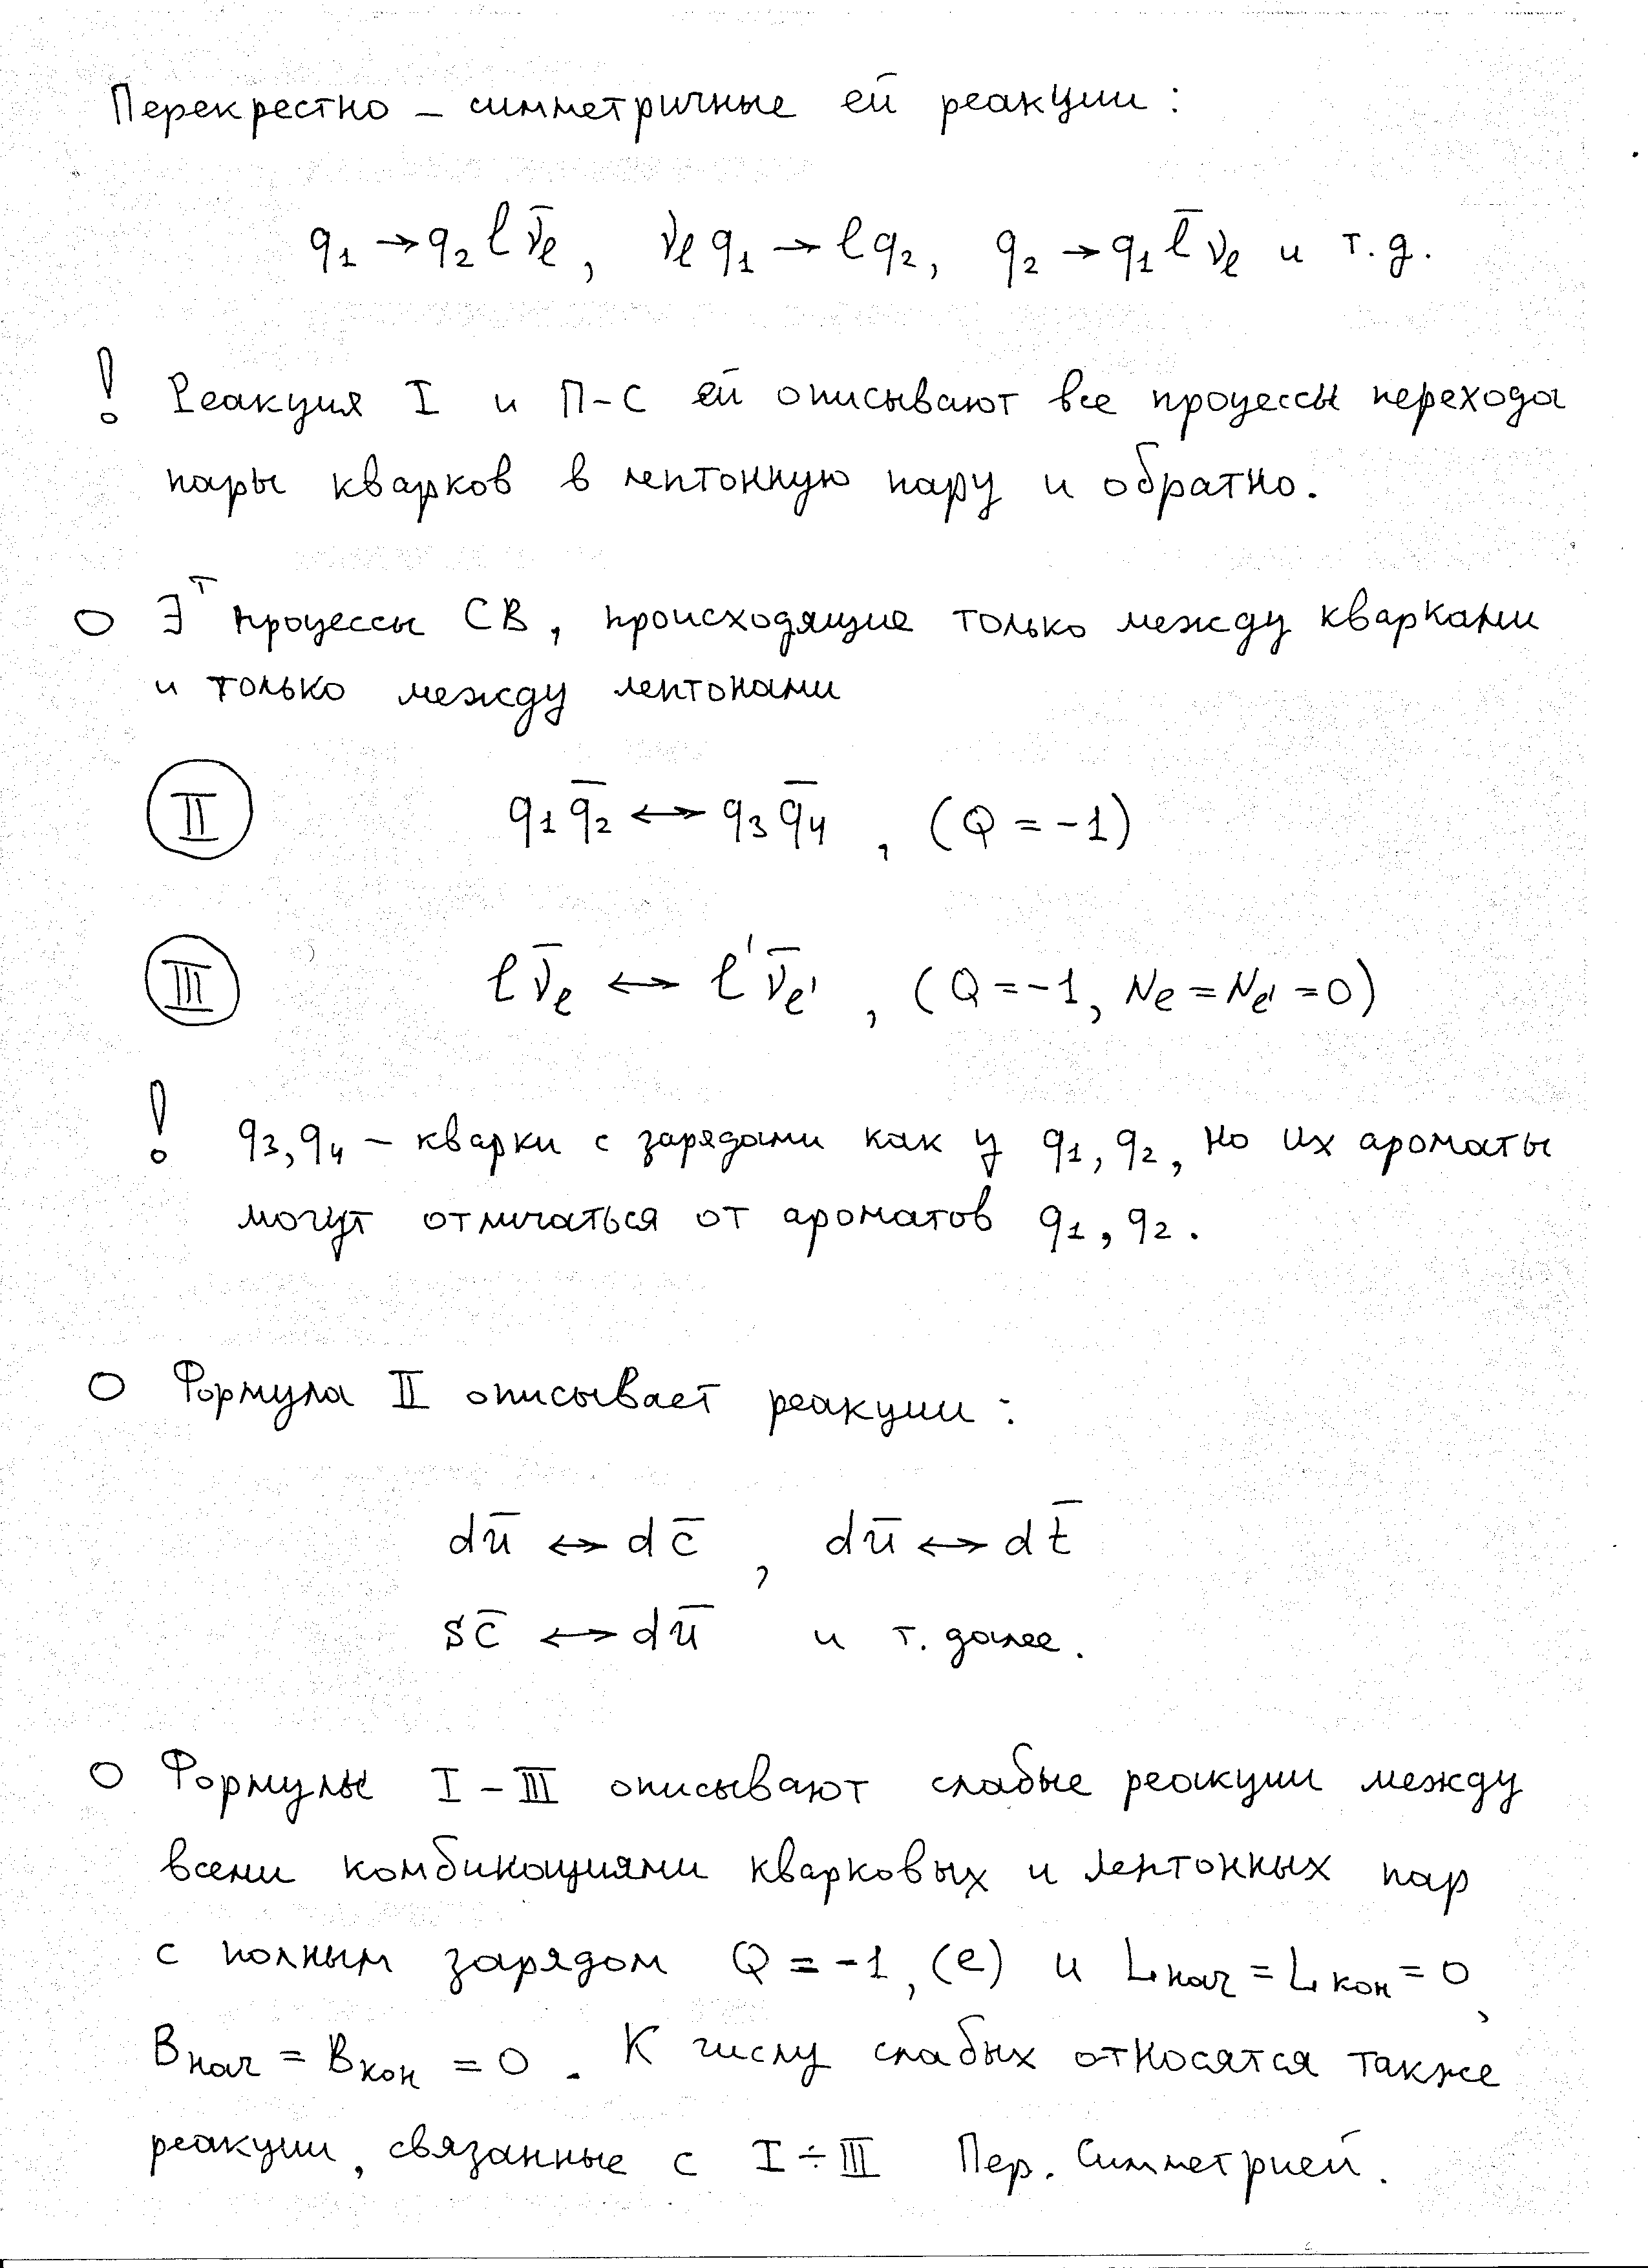 Перекрестно – симметричные ей реакции:
q₁ → q₂ l ν̄ₑ, νₑ q₁ → l q₂, q₂ → q₁ l̄ νₑ и т.д.
! Реакция I и П-С ей описывают все процессы перехода
пары кварков в лептонную пару и обратно.
○ ∃ᵀ процессы СВ, происходящие только между кварками
и только между лептонами
II q₁ q̄₂ ↔ q₃ q̄₄, (Q = -1)
III l ν̄ₑ ↔ l' ν̄ₑ', (Q = -1, Nₑ = Nₑ' = 0)
! q₃, q₄ – кварки с зарядами как у q₁, q₂, но их ароматы
могут отличаться от ароматов q₁, q₂.
○ Формула II описывает реакции:
dū ↔ dc̄, dū ↔ dt̄
sc̄ ↔ dū и т. далее.
○ Формулы I – III описывают слабые реакции между
всеми комбинациями кварковых и лептонных пар
с полным зарядом Q = -1, (e) и Lнач = Lкон = 0,
Bнач = Bкон = 0. К числу слабых относятся также
реакции, связанные с I ÷ III Пер. Симметрией.